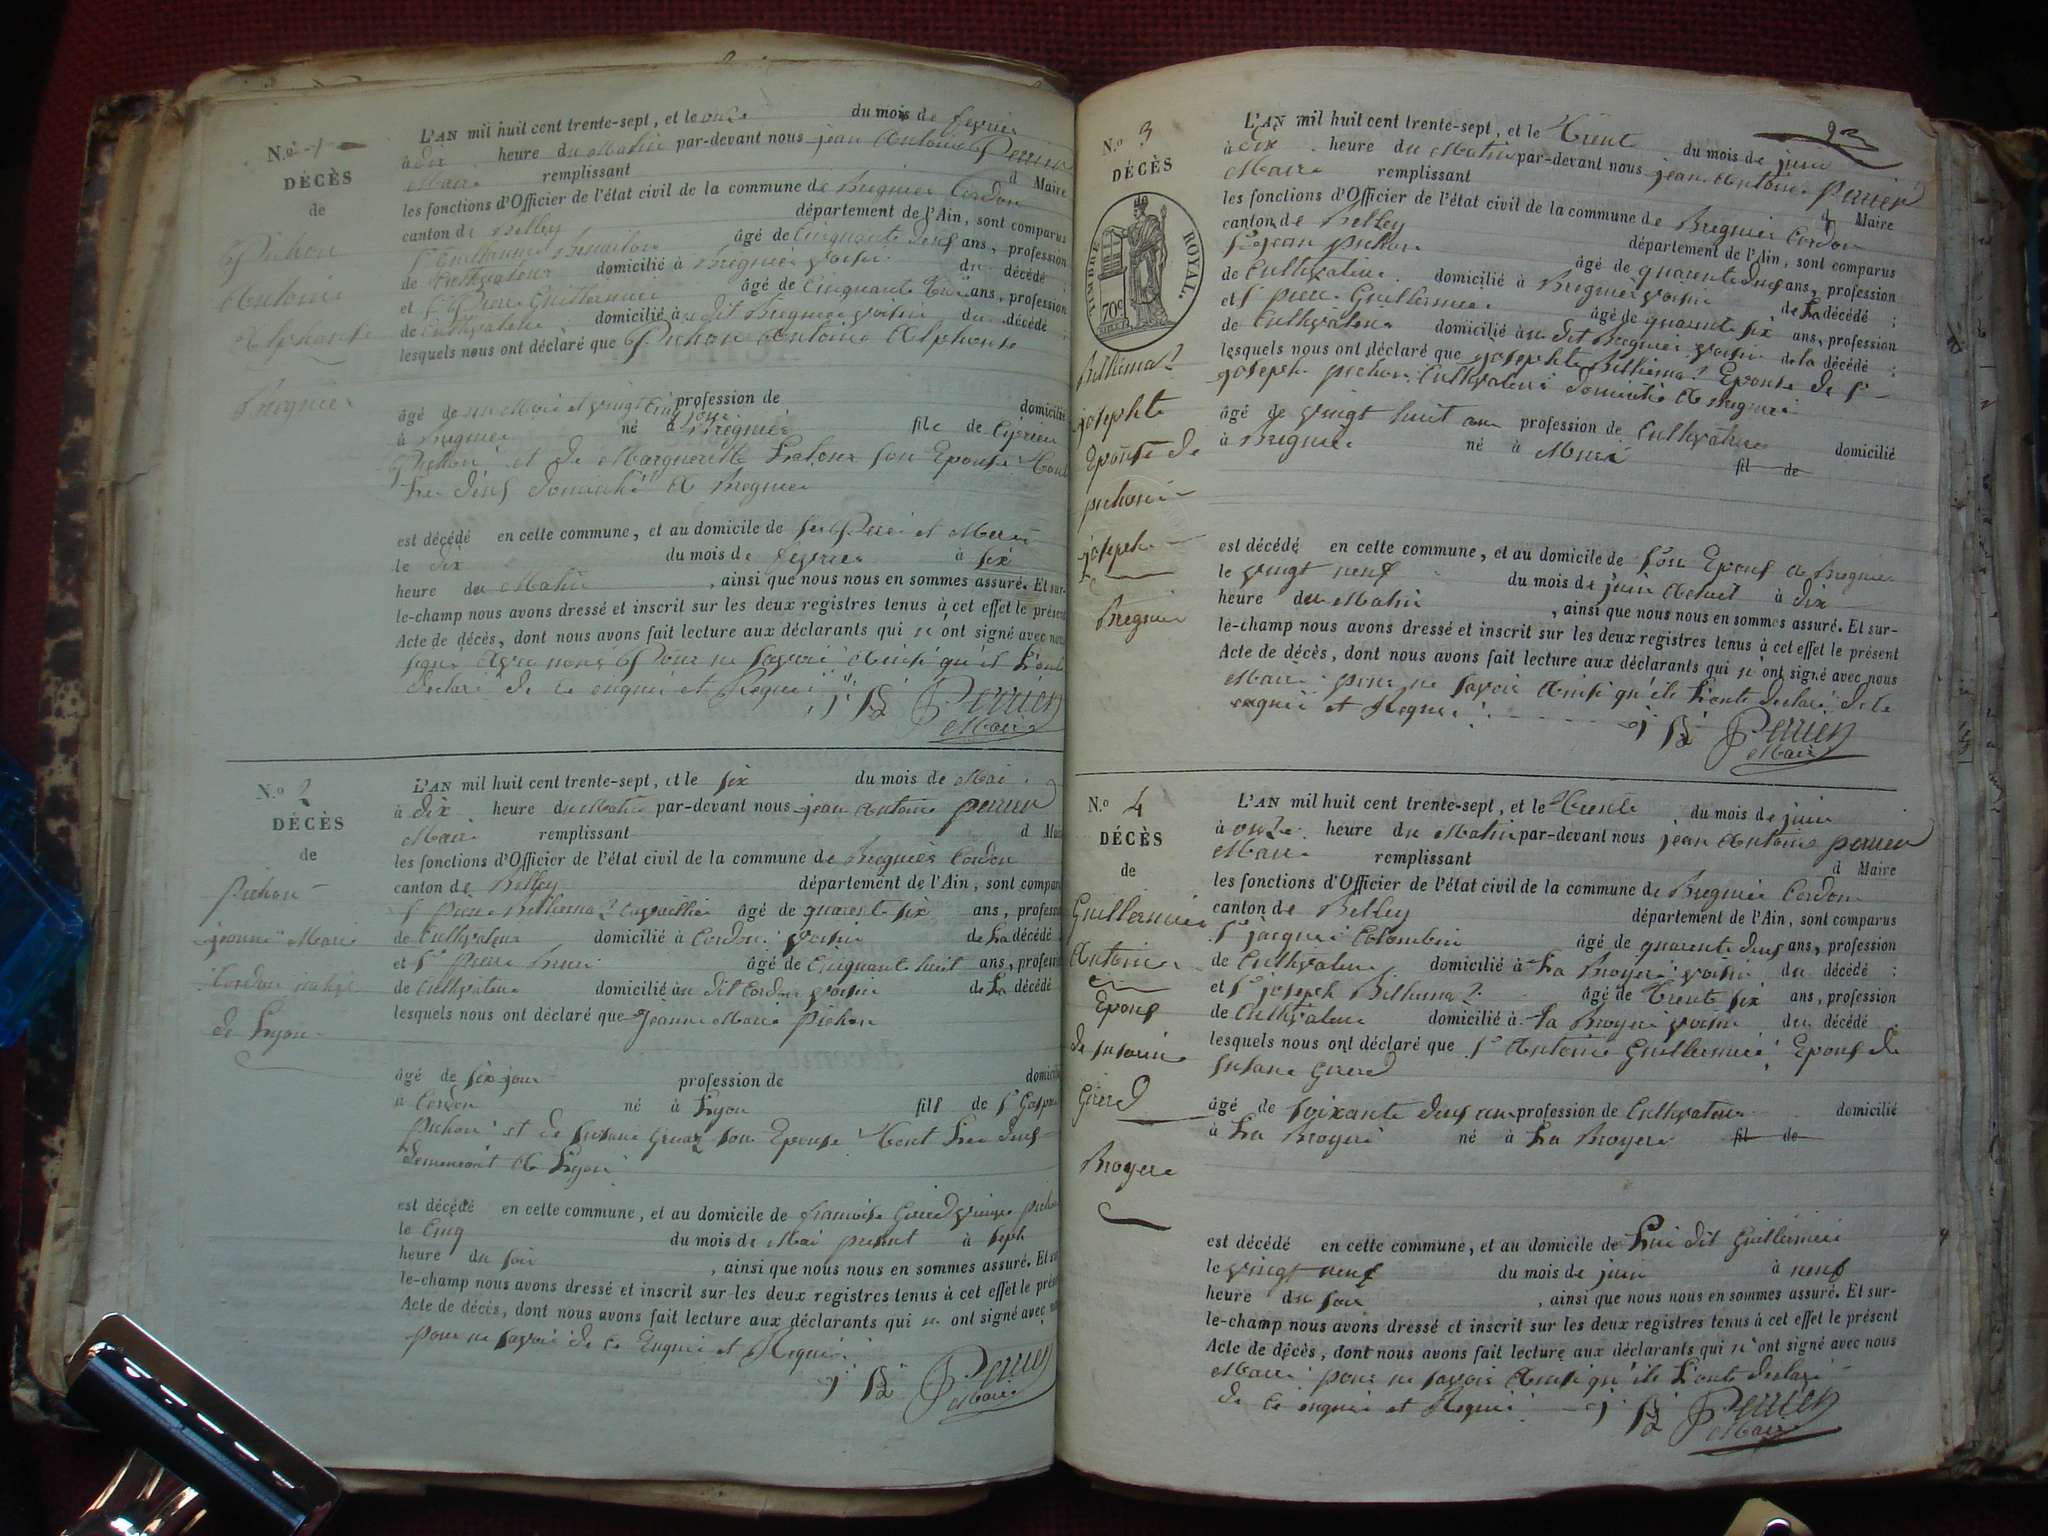 N.o 1
DÉCÈS
de
Pichon
Antoine
Alphonse
Bregnier
L'AN mil huit cent trente-sept, et le onze du mois de fevrier
à dix heure du Matin par-devant nous jean Antoine Perrier
Maire remplissant d Maire
les fonctions d'Officier de l'état civil de la commune de Bregnier Cordon
canton de Belley département de l'Ain, sont comparus
âgé de Cinquante deux ans, profession
de Cultivateur domicilié à Bregnier voisin du décédé
et Sr Pierre Guillermier âgé de Cinquante ans, profession
de Cultivateur domicilié au dit Bregnier voisin du décédé
lesquels nous ont déclaré que Pichon Antoine Alphonse
âgé de un Mois et vingt cinq jour profession de domicilié
à Bregnier né à Bregnier fils de Cyprien
Pichon et de Marguerite son Epouse tout
Les deux domicilié à Bregnier
est décédé en cette commune, et au domicile de ses Pere et Mere
le dix du mois de fevrier à six
heure du Matin, ainsi que nous nous en sommes assuré. Et sur-
le-champ nous avons dressé et inscrit sur les deux registres tenus à cet effet le présent
Acte de décès, dont nous avons fait lecture aux déclarants qui n'ont signé avec nous
Pour ne savoir Ainsi qu'il L'onte
declaré de ce enquis et Requis
Perrier
Maire
N.o 2
DÉCÈS
de
Pichon
jeanne Marie
Cordon
de Lyon
L'AN mil huit cent trente-sept, et le six du mois de Mai
à dix heure du Matin par-devant nous jean Antoine perrier
Maire remplissant d Mai
les fonctions d'Officier de l'état civil de la commune de Bregnier Cordon
canton de Belley département de l'Ain, sont compar
Sr Pierre Billiemaz âgé de quarente six ans, profess
de Cultivateur domicilié à Cordon voisin de La décédé
et Sr Pierre âgé de Cinquante huit ans, profess
de Cultivateur domicilié au dit Cordon voisin de La décédé
lesquels nous ont déclaré que Jeanne Marie Pichon
âgé de six jour profession de domicil
à Cordon né à Lyon fils de Sr
Pichon et de Susane son Epouse tout Les deux
demeurant à Lyon
est décédé en cette commune, et au domicile de francoise Gird
le Cinq du mois de Mai present à sept
heure du soir, ainsi que nous nous en sommes assuré. Et
le-champ nous avons dressé et inscrit sur les deux registres tenus à cet effet le prés
Acte de décès, dont nous avons fait lecture aux déclarants qui n ont signé avec
pour ne savoir de ce Enquis et Requis
Perrier
Maire
N.o 3
DÉCÈS
TIMBRE ROYAL.
70c
Billiemaz
josephte
Epouse de
pichon
joseph
Bregnier
93
L'AN mil huit cent trente-sept, et le Trent du mois de juin
à dix heure du Matin par-devant nous jean Antoine Perrier
Maire remplissant d Maire
les fonctions d'Officier de l'état civil de la commune de Bregnier Cordon
canton de Belley département de l'Ain, sont comparus
Sr jean pichon âgé de quarente deux ans, profession
de Cultivateur domicilié à Bregnier voisin de La décédé ;
et Sr pierre Guillermier âgé de quarente six ans, profession
de Cultivateur domicilié au dit Bregnier voisin de la décédé ;
lesquels nous ont déclaré que josephte Billiemaz Epouse de Sr
joseph pichon Cultivateur domicilié à Bregnier
âgé de vingt huit ans profession de Cultivateur domicilié
à Bregnier né à Murs fil de
est décédé en cette commune, et au domicile de son Epoux à Bregnier
le vingt neuf du mois de juin Actuel à dix
heure du Matin, ainsi que nous nous en sommes assuré. Et sur-
le-champ nous avons dressé et inscrit sur les deux registres tenus à cet effet le présent
Acte de décès, dont nous avons fait lecture aux déclarants qui n'ont signé avec nous
Maire pour ne savoir Ainsi qu'ils L'onte declaré de ce
enquis et Requis
Perrier
Maire
N.o 4
DÉCÈS
de
Guillermier
Antoine
Epoux
de susane
Girerd
Broyere
L'AN mil huit cent trente-sept, et le Trente du mois de juin
à onze heure du Matin par-devant nous jean Antoine perrier
Maire remplissant d Maire
les fonctions d'Officier de l'état civil de la commune de Bregnier Cordon
canton de Belley département de l'Ain, sont comparus
Sr jacques Colombin âgé de quarente deux ans, profession
de Cultivateur domicilié à La Broyere voisin du décédé ;
et Sr joseph Billiemaz âgé de Trente six ans, profession
de Cultivateur domicilié à La Broyere voisin du décédé
lesquels nous ont déclaré que Sr Antoine Guillermier Epoux de
susane Girerd
âgé de soixante deux ans profession de Cultivateur domicilié
à La Broyere né à La Broyere fil de
est décédé en cette commune, et au domicile de Lui dit Guillermier
le vingt neuf du mois de juin à neuf
heure du soir, ainsi que nous nous en sommes assuré. Et sur-
le-champ nous avons dressé et inscrit sur les deux registres tenus à cet effet le présent
Acte de décès, dont nous avons fait lecture aux déclarants qui n'ont signé avec nous
Maire pour ne savoir Ainsi qu'ils L'onte declaré
de ce enquis et Requis
Perrier
Maire